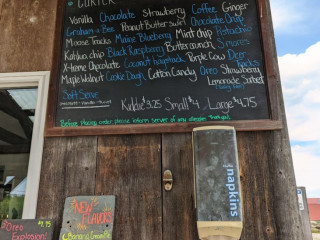 Vanilla Chocolate Strawberry Coffee Ginger
Graham Peanut Butter Swirl Chocolate Chip
Moose Tracks Maine Blueberry Mint chip Pistachio
Kahlua chip Black Raspberry Buttercrunch S'mores
X-treme Chocolate Coconut Purple Cow Deer Tracks
Maple Walnut Cookie Dough Cotton Candy Oreo Strawberry
Lemonade Sorbet
(Dairy Free)
Soft Serve
Kiddie 3.25 Small $4 Large $4.75
Before placing order, please inform server of any allergies. Thank you!
napkins
NEW
Flavors
Oreo
Explosion!
Banana